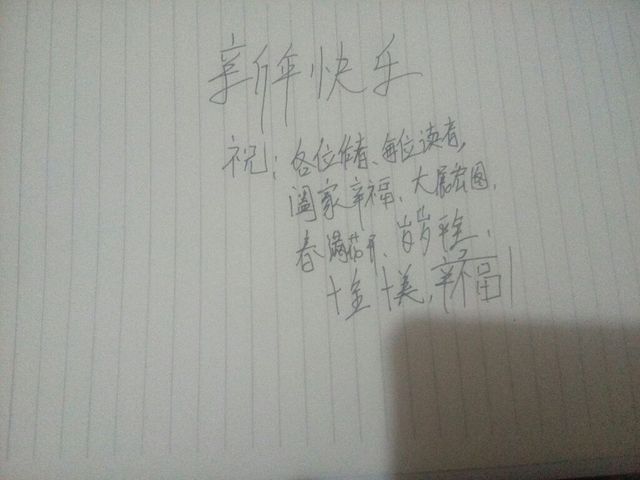 新年快乐
祝：各位作者、每位读者，
阖家幸福、大展宏图、
春满花开、岁岁平安、
十全十美，幸福！